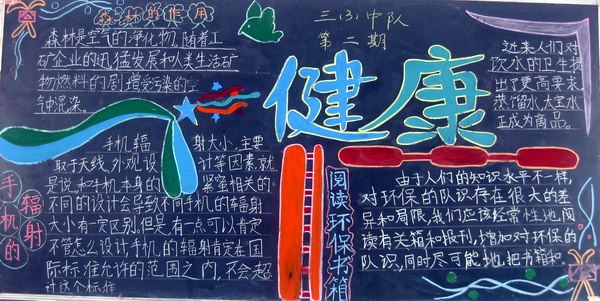 森林的作用
森林是空气的净化物。随着工
矿企业的迅猛发展和人类生活矿
物燃料的剧增受污染的空
气中混杂
三(3)中队
第二期
健康
近来人们对
饮水的卫生提
出了更高要求
蒸馏水太空水
正成为商品。
手机的
辐射
手机辐射大小,主要
取于天线、外观设计等因素,就
是说和手机本身的紧蜜相关的
不同的设计会导致不同手机的辐射
大小有一定区别。但是,有一点可以肯定
不管怎么设计手机的辐射肯定在国
际标准允许的范围之内,不会超
过这个标准
阅读环保书箱
由于人们的知识水平不一样,
对环保的队识存在很大的差
异和局限,我们应该经常性地阅
读有关箱和报刊,增加对环保的
队识,同时尽可能地,把书箱和